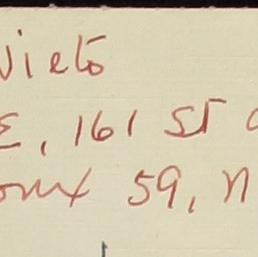 vieto
E, 161 ST
onx 59, N